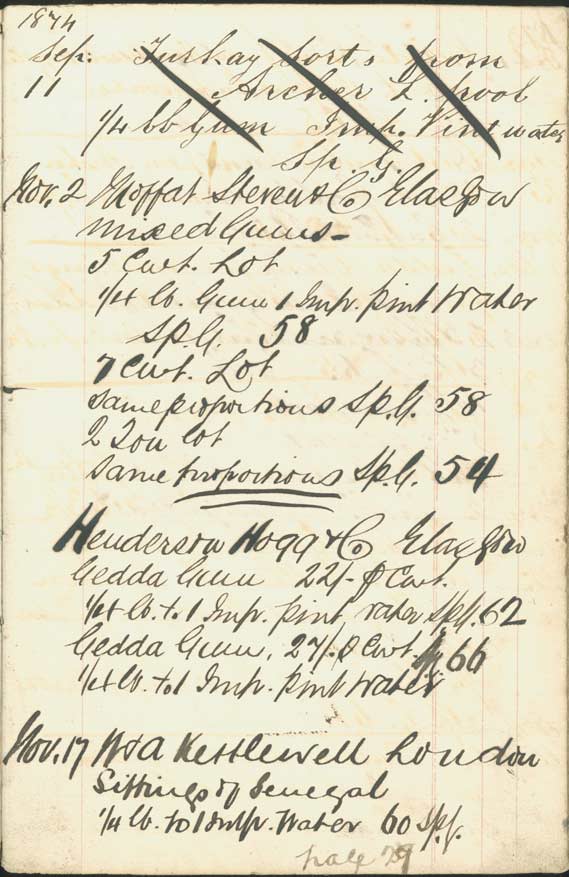 1874
Sep. Turkay Sorts from
11 Archer L. pool
1/4 lb Gum Imp. Pint water
Sp. G.
Nov. 2 Moffat Steven & Co Glasgow
Mixed Gums -
5 Cwt. Lot
1/4 lb. Gum 1 Imp. pint Water
Sp. G. 58
7 Cwt. Lot
Same proportions Sp. G. 58
2 Ton lot
Same proportions Sp. G. 54
Henderson Hogg & Co Glasgow
Gedda Gum 22/- Cwt.
1/4 lb. to 1 Imp. pint water Sp. G. 62
Gedda Gum, 27/- Cwt. 66
1/4 lb. to 1 Imp. pint Water
Nov. 17 W & A Kettlewell London
Siftings of Senegal
1/4 lb. to 1 Imp. Water 60 Sp. g.
page 29